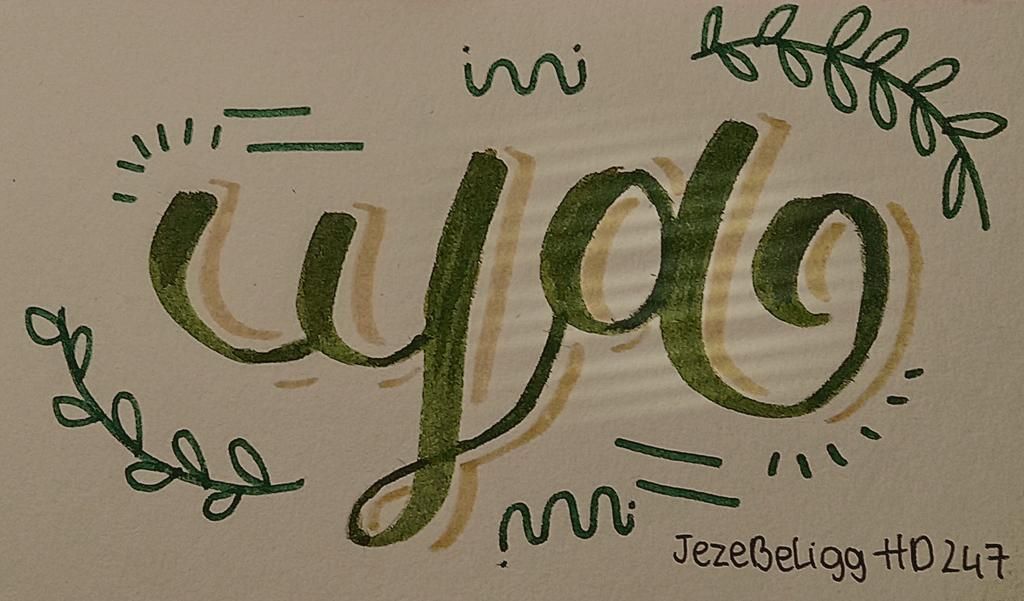 uydo
JezeBeLigg HD247